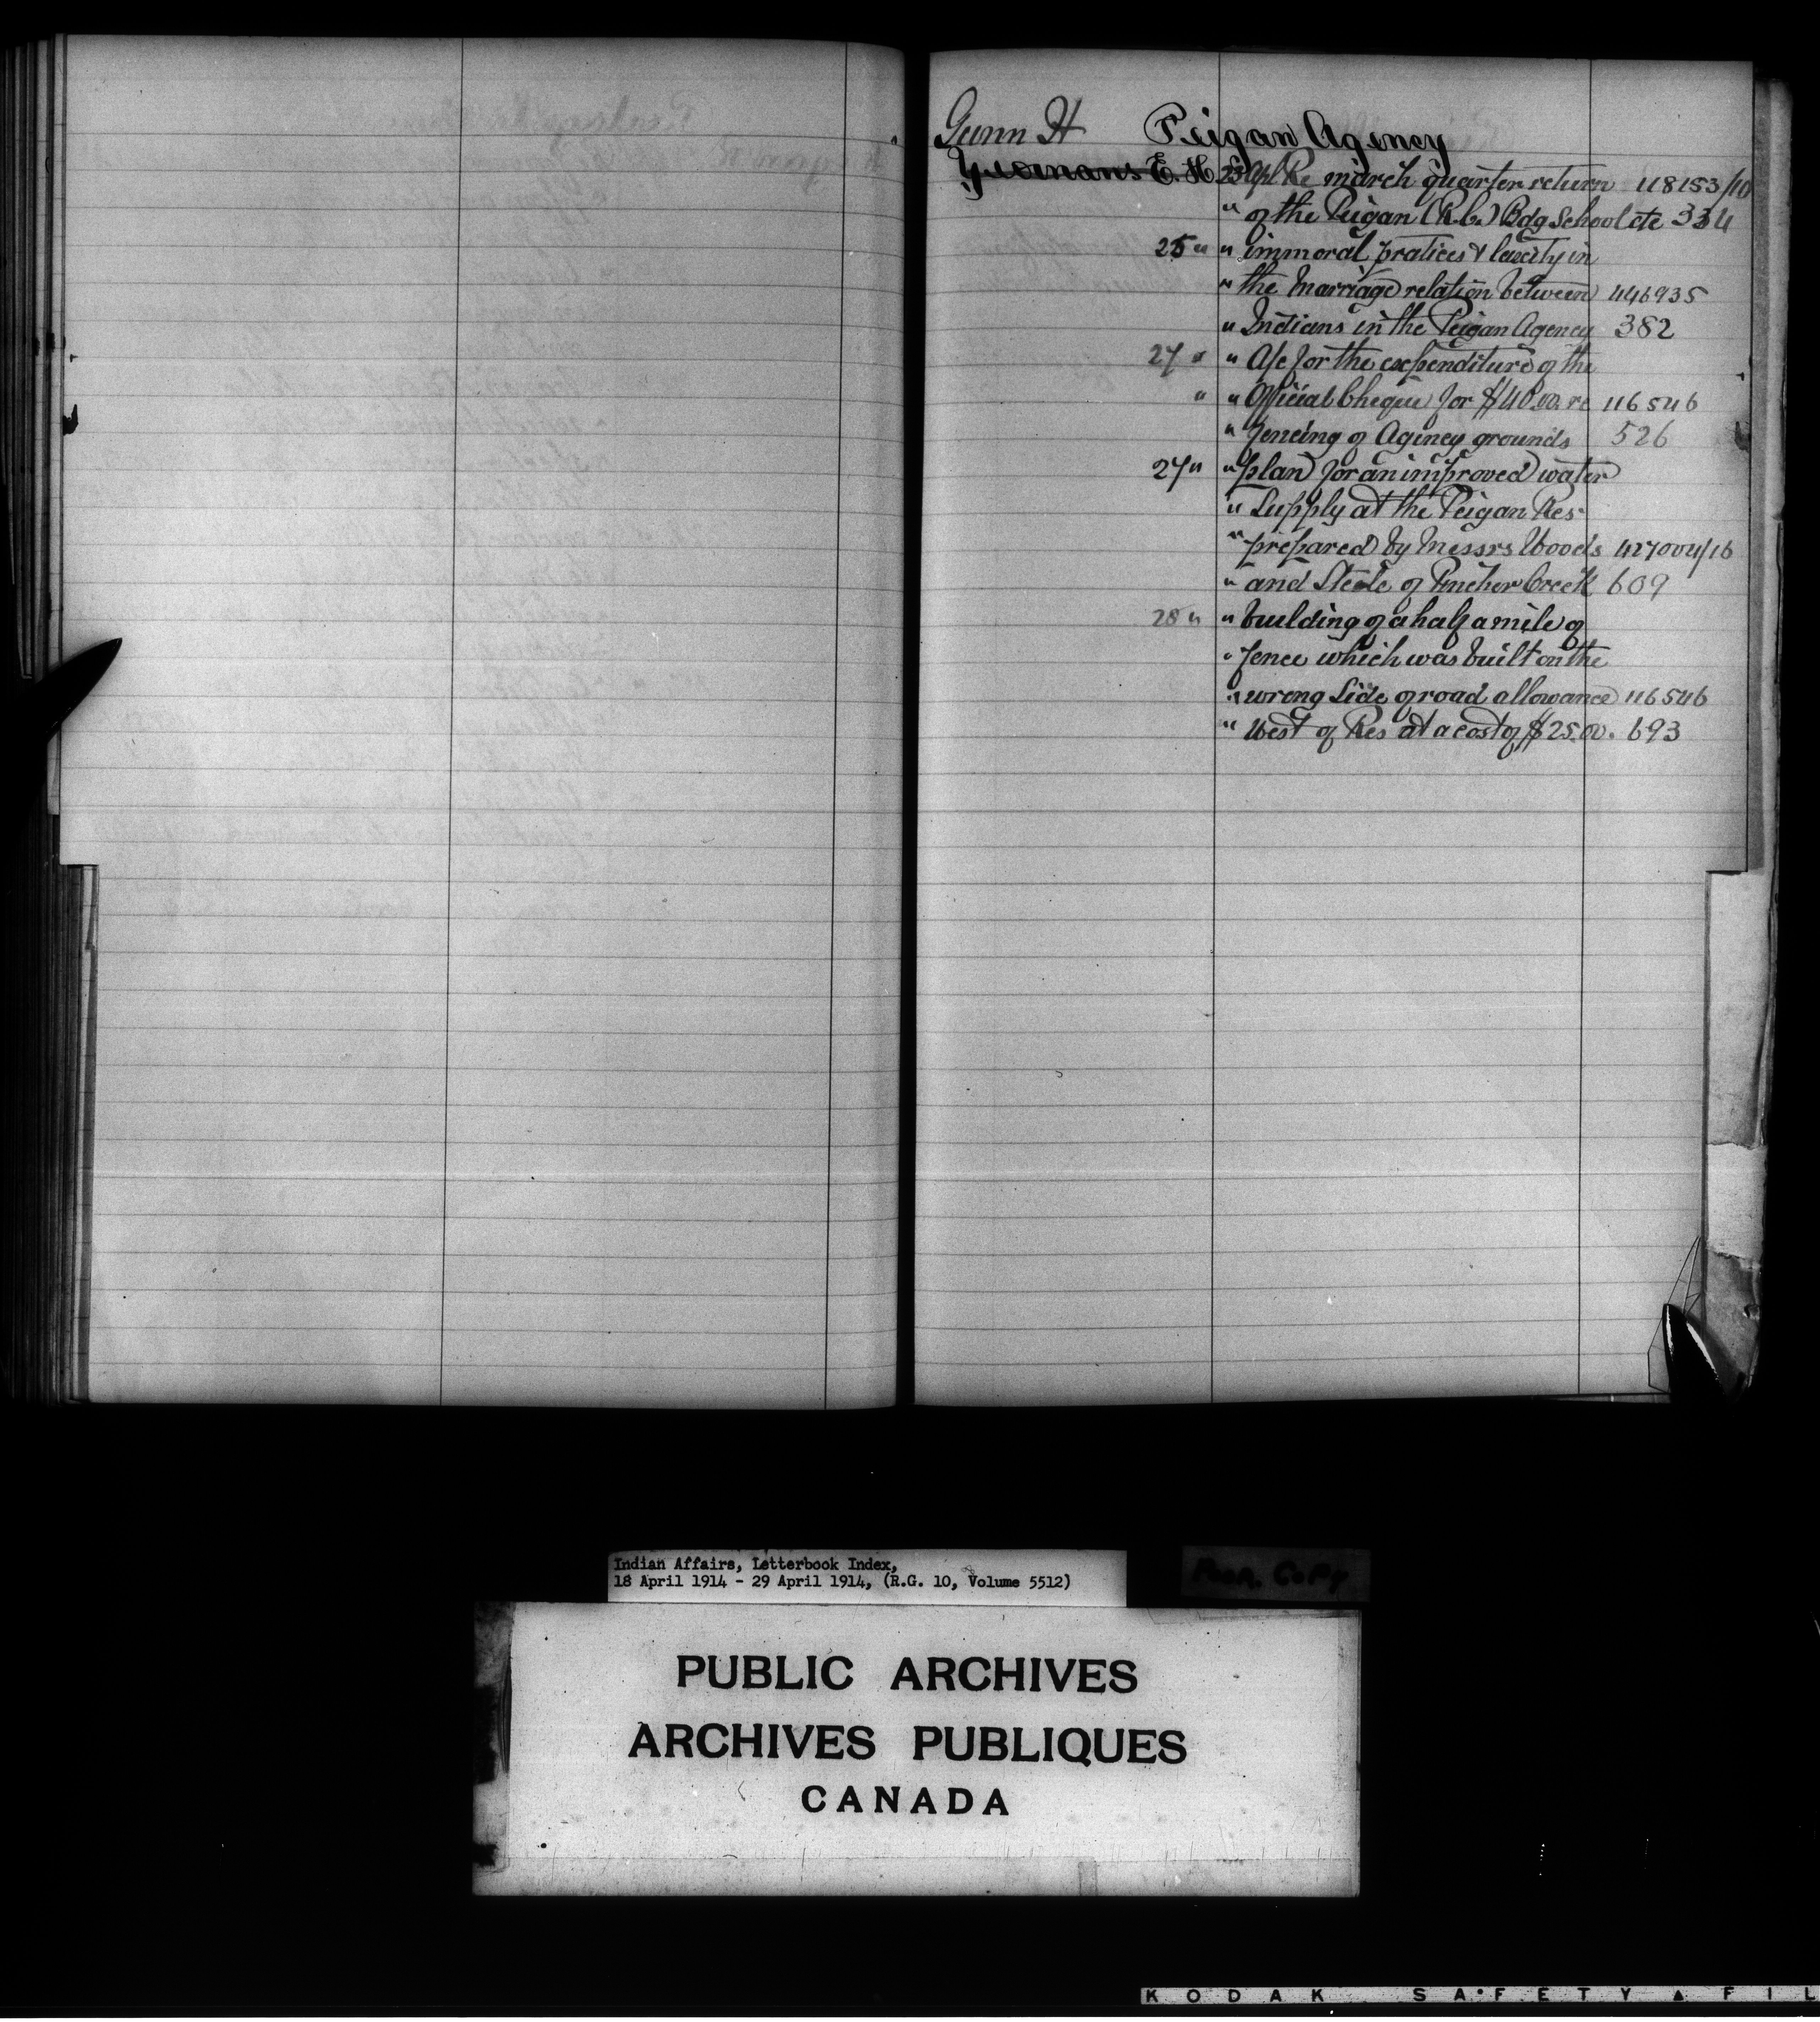 Gunn H Peigan Agency
Yeomans E. H. 25 Apl Re march quarter return 118153/10
" of the Peigan (R.C.) Bdg School etc 334
25 " " immoral pratices & laxity in
" the Marriage relation between 446935
" Indians in the Peigan Agency 382
27 " " A/c for the expenditure of the
" " Official Cheque for $40.00. re 116546
" fencing of Agency grounds 526
27 " " plan for an improved water
" Supply at the Peigan Res.
" prepared by Messrs Woods 427004/16
" and Steele of Pincher Creek 609
28 " " building of a half a mile of
" fence which was built on the
" wrong Side of road allowance 116546
" West of Res at a cost of $25.00. 693
Indian Affairs, Letterbook Index,
18 April 1914 - 29 April 1914, (R.G. 10, Volume 5512)
Poor Copy
PUBLIC ARCHIVES
ARCHIVES PUBLIQUES
CANADA
KODAK SAFETY ▲ FIL